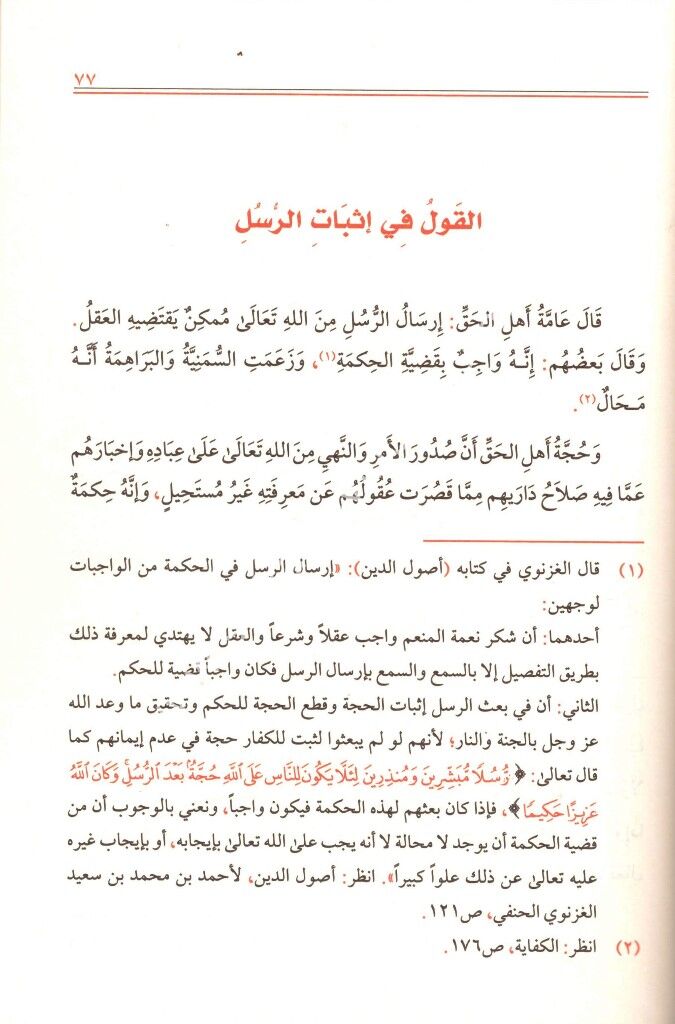 ٧٧
القَولُ فِي إثبَاتِ الرسُلِ
قَالَ عَامَّةُ أَهلِ الحَقِّ: إِرسَالُ الرُّسُلِ مِنَ اللهِ تَعَالَىٰ مُمكِنٌ يَقتَضِيهِ العَقلُ.
وَقَالَ بَعضُهُم: إِنَّهُ وَاجِبٌ بِقَضِيَّةِ الحِكمَةِ(١)، وَزَعَمَتِ السُّمَنِيَّةُ وَالبَرَاهِمَةُ أَنَّهُ
مَحَالٌ(٢).
وَحُجَّةُ أَهلِ الحَقِّ أَنَّ صُدُورَ الأَمرِ وَالنَّهيِ مِنَ اللهِ تَعَالَىٰ عَلَىٰ عِبَادِهِ وَإِخبَارَهُم
عَمَّا فِيهِ صَلَاحُ دَارَيهِم مِمَّا قَصُرَت عُقُولُهُم عَن مَعرِفَتِهِ غَيرُ مُستَحِيلٍ، وَإِنَّهُ حِكمَةٌ
(١) قال الغزنوي في كتابه (أصول الدين): «إرسال الرسل في الحكمة من الواجبات
لوجهين:
أحدهما: أن شكر نعمة المنعم واجب عقلاً وشرعاً والعقل لا يهتدي لمعرفة ذلك
بطريق التفصيل إلا بالسمع والسمع بإرسال الرسل فكان واجباً قضية للحكم.
الثاني: أن في بعث الرسل إثبات الحجة وقطع الحجة للحكم وتحقيق ما وعد الله
عز وجل بالجنة والنار؛ لأنهم لو لم يبعثوا لثبت للكفار حجة في عدم إيمانهم كما
قال تعالىٰ: ﴿رُّسُلًا مُّبَشِّرِينَ وَمُنذِرِينَ لِئَلَّا يَكُونَ لِلنَّاسِ عَلَى ٱللَّهِ حُجَّةٌۢ بَعْدَ ٱلرُّسُلِۚ وَكَانَ ٱللَّهُ
عَزِيزًا حَكِيمًا﴾، فإذا كان بعثهم لهذه الحكمة فيكون واجباً، ونعني بالوجوب أن من
قضية الحكمة أن يوجد لا محالة لا أنه يجب علىٰ الله تعالىٰ بإيجابه، أو بإيجاب غيره
عليه تعالىٰ عن ذلك علواً كبيراً». انظر: أصول الدين، لأحمد بن محمد بن سعيد
الغزنوي الحنفي، ص١٢١.
(٢) انظر: الكفاية، ص١٧٦.